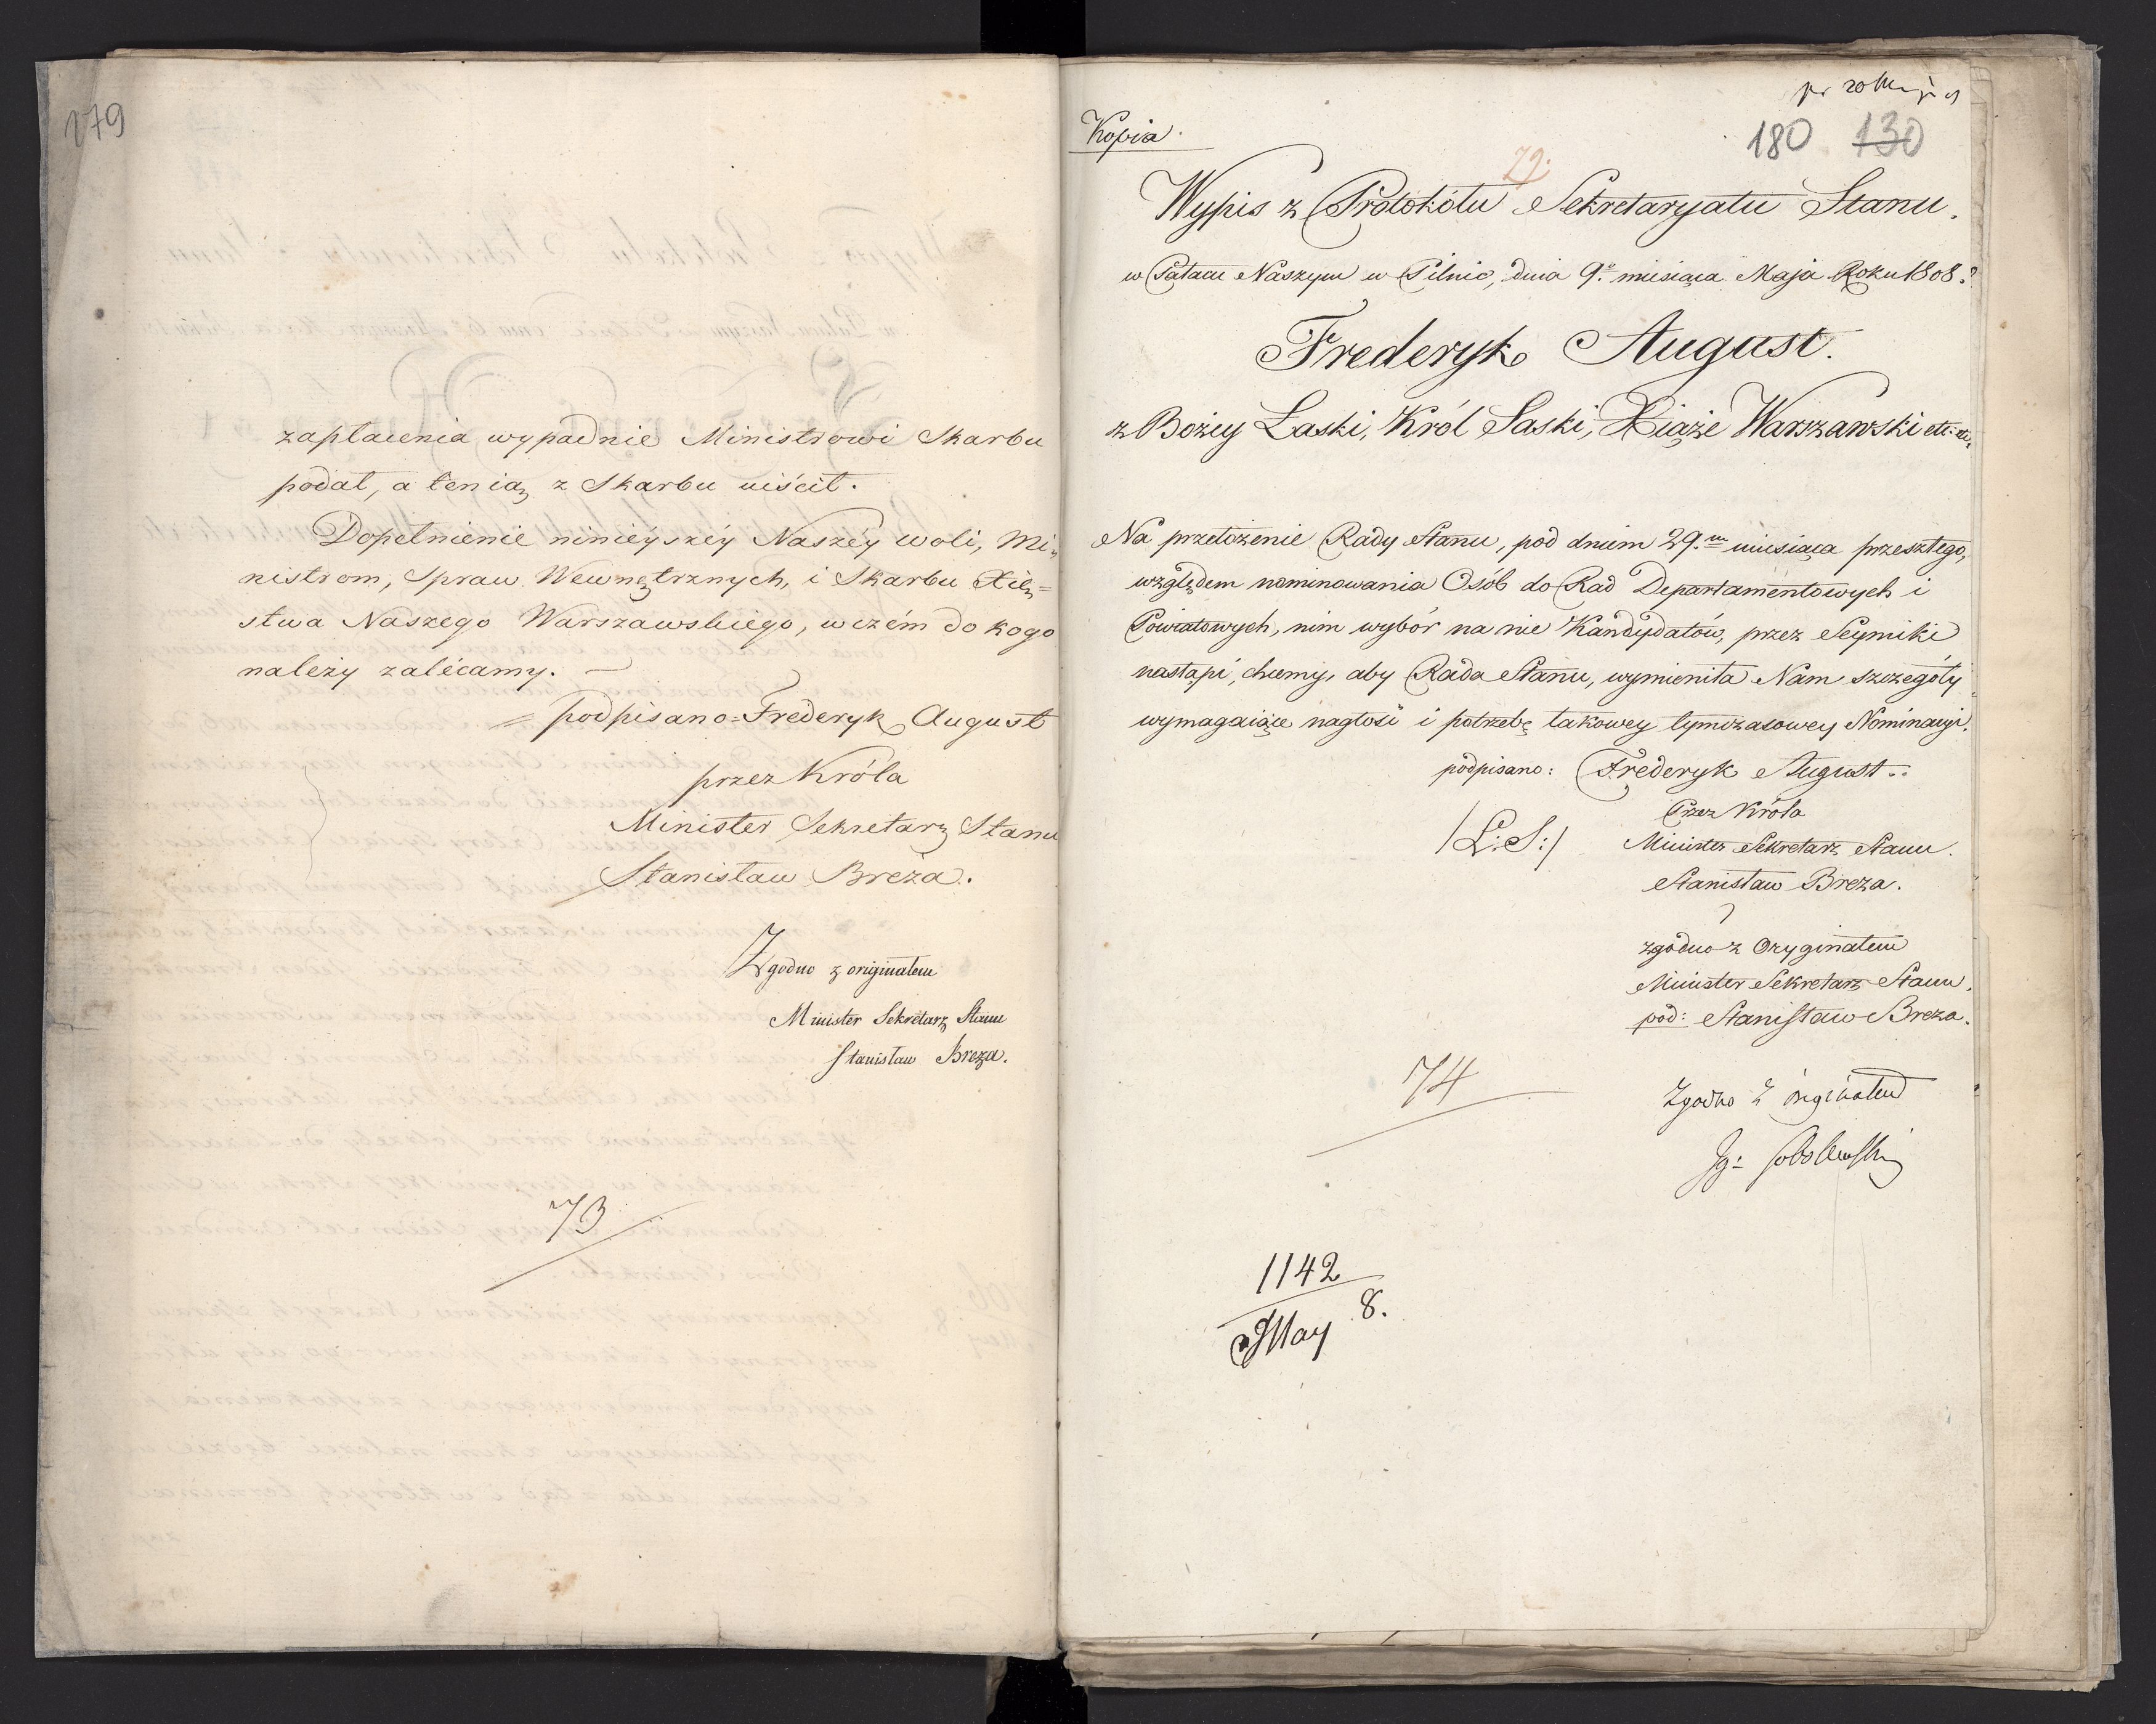 179
zapłacenia wypadnie Ministrowi Skarbu
podał, a ten ią z Skarbu uiścił.
Dopełnienie ninieyszéy Naszéy woli, Mi-
nistrom, Spraw Wewnętrznych, i Skarbu Xię=
stwa Naszego Warszawskiego, w czém do kogo
należy zalécamy. —
= podpisano = Fryderyk August
przez Króla
Minister Sekretarz Stanu
Stanisław Breza.
Zgodno z originałem
Minister Sekretarz Stanu
Stanisław Breza.
73
pr 20 Maja
Kopia.
180 130
72.
Wypis z Protokółu Sekretaryatu Stanu.
w Pałacu Naszym w Pilnic, dnia 9.º miesiąca Maja Roku 1808.º
Frederyk August.
z Bożey Łaski, Król Saski, Xiąże Warszawski etc: etc.
Na przełożenie Rady Stanu, pod dniem 29.m miesiąca przeszłego,
względem nominowania Osób do Rad Departamentowych i
Powiatowych, nim wybór na nie Kandydatów, przez Seymiki
nastąpi, chcemy, aby Rada Stanu, wymieniła Nam szczegóły
wymagaiące nagłość i potrzebę takowey tymczasowey Nominacyi.
podpisano: Frederyk August.
Przez Króla
/L:S:/ Minister Sekretarz Stanu.
Stanisław Breza.
zgodno z Oryginałem
Minister Sekretarz Stanu.
pod: Stanisław Breza.
74
Zgodno z originałem
Ig: Sobolewski
1142
May 8.